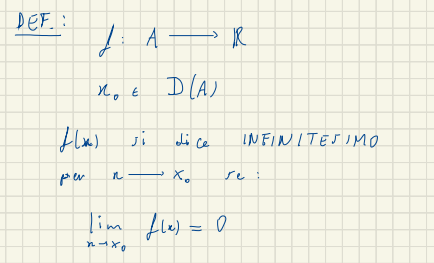 DEF.:
f: A ⟶ ℝ
x₀ ∈ D(A)
f(x) si dice INFINITESIMO
per x ⟶ x₀ se:
lim f(x) = 0
x→x₀